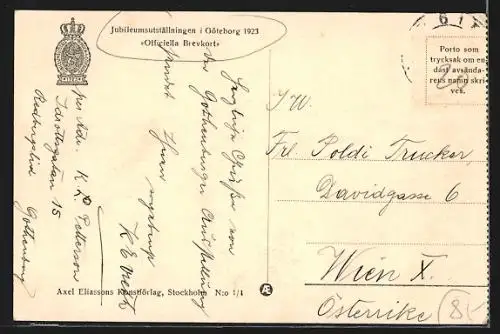 Jubileumsutställningen i Göteborg 1923
»Officiella Brevkort»
Porto som
trycksak om en-
dast avsända-
rens namn skri-
ves.
Herzliche Grüße von
der Gothenburger Ausstellung
sendet Ihnen
per Adr. K. L. Petterson
15
Gothenburg
I. W.
Frl. Poldi Trucker
Davidgasse 6
Wien X.
Österrike
85
Axel Eliassons Konstförlag, Stockholm N:o 1/4
Æ